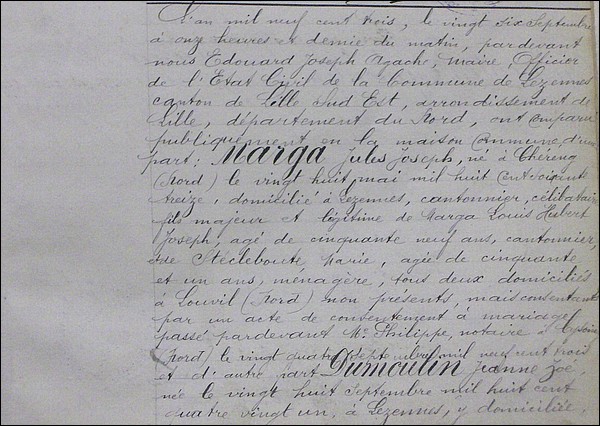 L'an mil neuf cent trois, le vingt six Septembre
à onz heures et demie du matin, pardevant
nous Edouard Joseph Agache, Maire, Officier
de l'Etat Civil de la Commune de Lezennes
canton de Lille Sud Est, arrondissement de
Lille, département du Nord, ont comparu
publiquement en la maison Commune d'un
part: Marga Jules Joseph, né à Chereng
(Nord) le vingt huit mai mil huit cent soixante
treize, domicilié à Lezennes, cantonnier, célibataire
fils majeur et légitime de Marga Louis Hubert
Joseph, agé de cinquante neuf ans, cantonnier,
de Stécleboute Marie, agée de cinquante
et un ans, ménagère, tous deux domiciliés
à Louvil (Nord) non présents, mais consentants
par un acte de consentement à mariage
passé pardevant Me Philippe, notaire à Cysoing
Nord), le vingt quatre septembre mil neuf cent trois
et d'autre part Dumoulin Jeanne Zoé,
née le vingt huit Septembre mil huit cent
quatre vingt un, à Lezennes, y domiciliée,